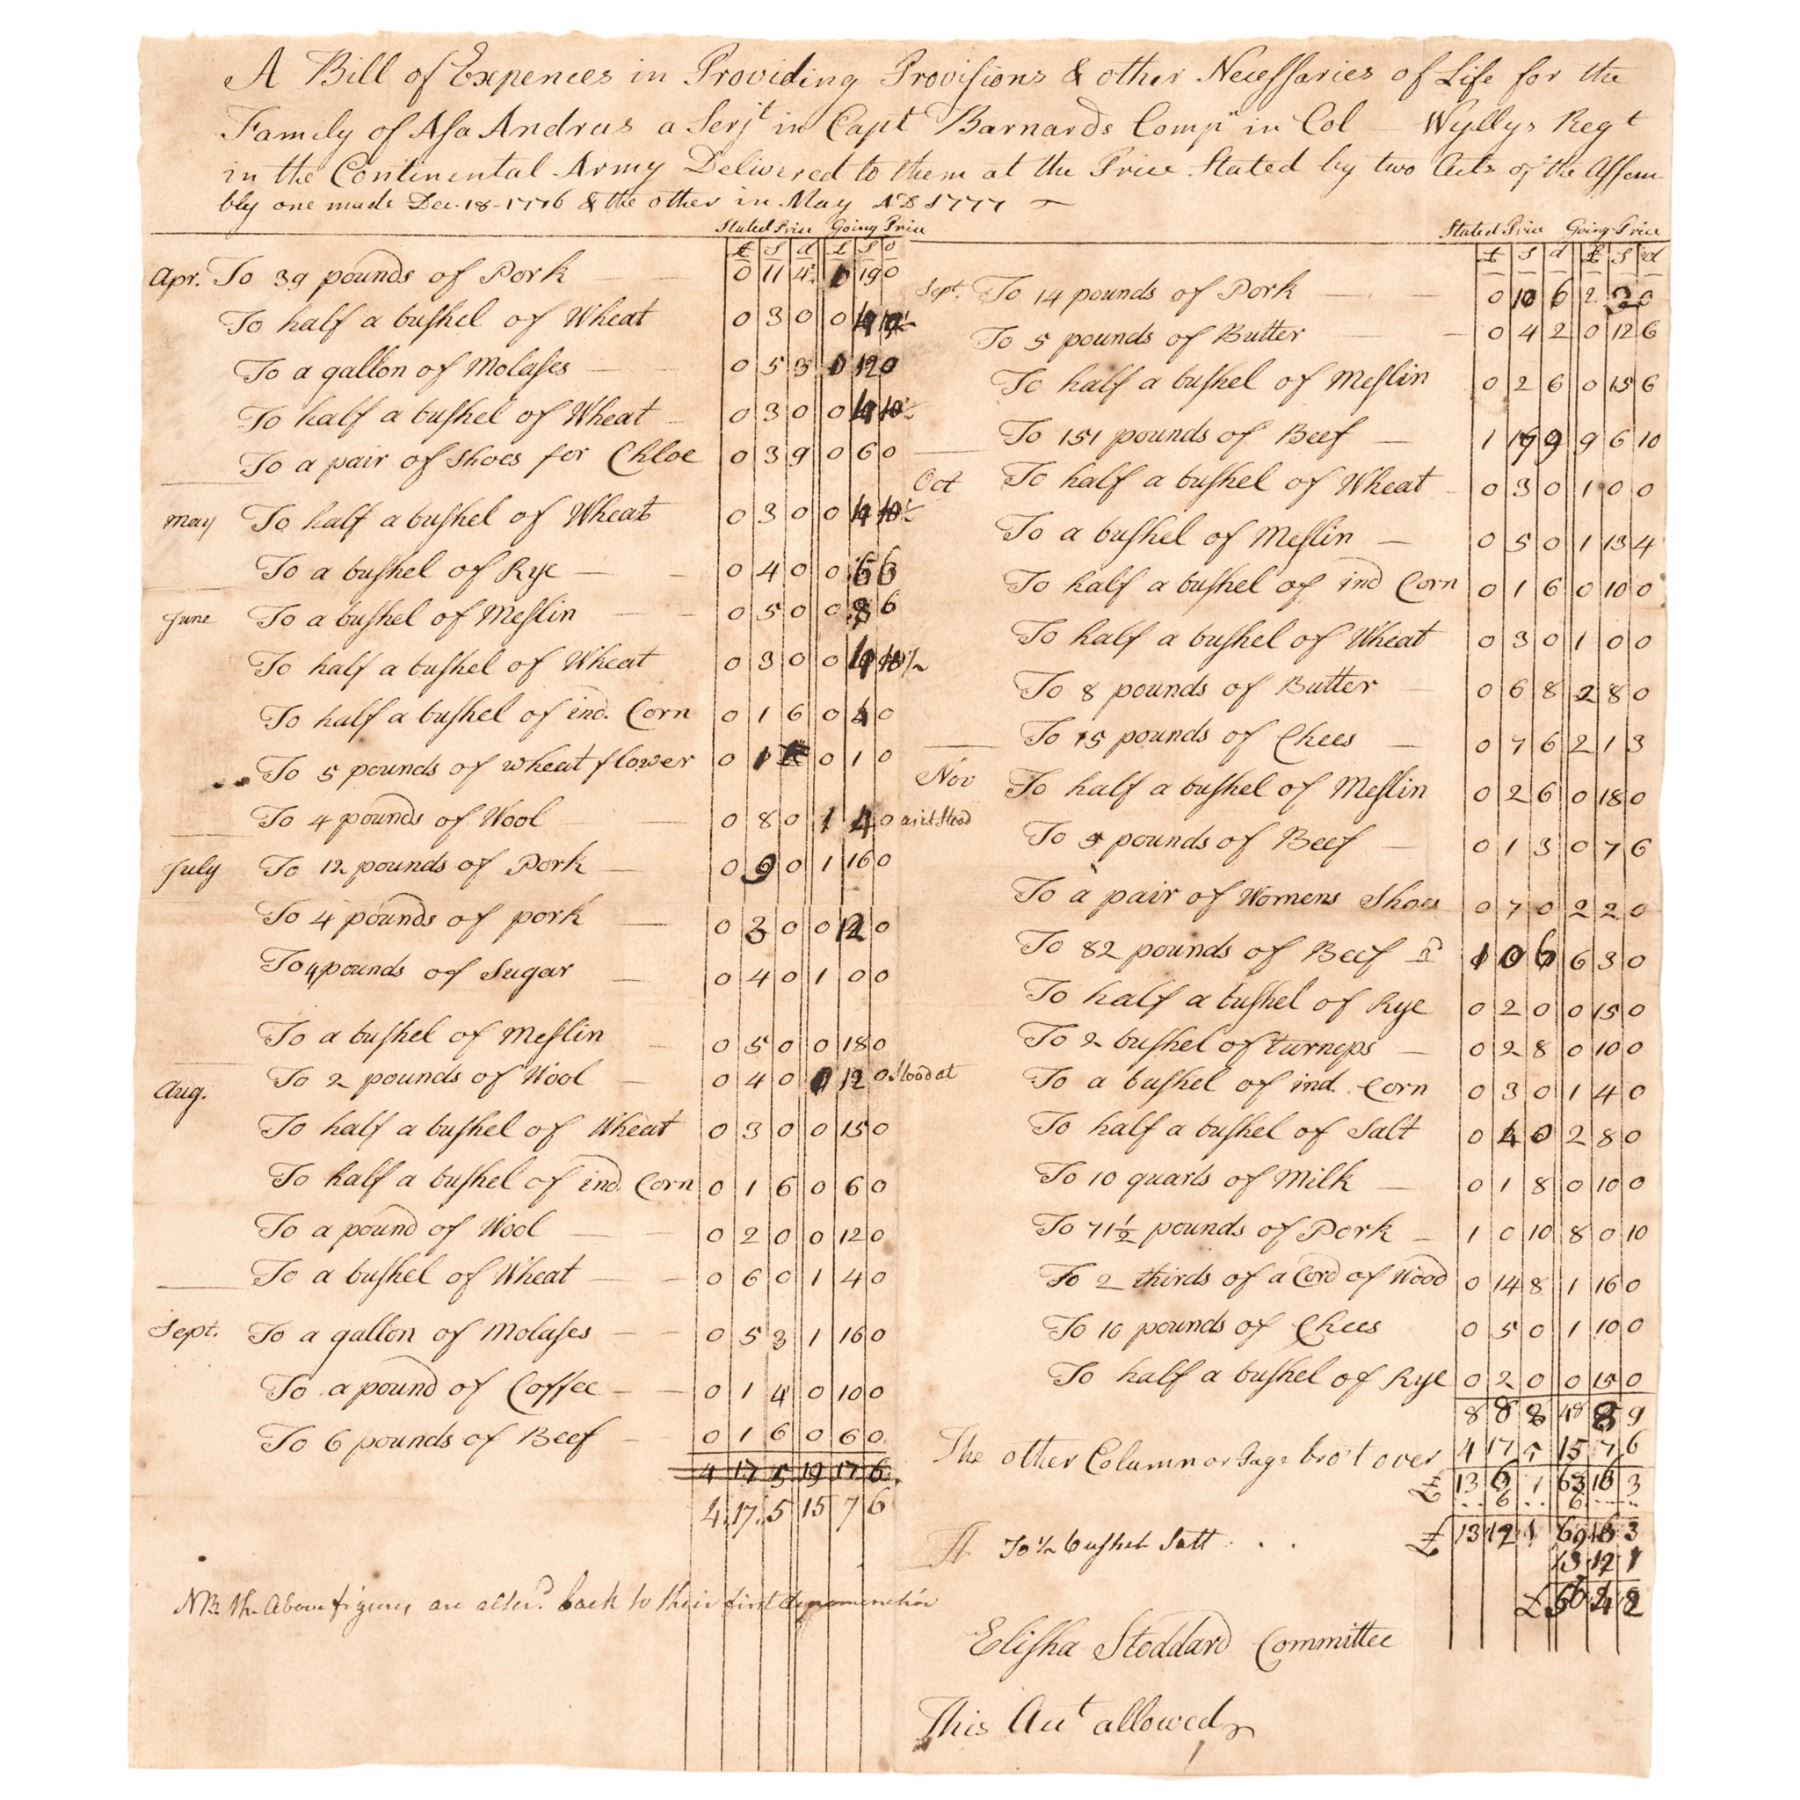 A Bill of Expences in Providing Provisions & other Necessaries of Life for the
Family of Asa Andrus a Serjt in Capt Barnards Compn in Col — Wyllys Regt
in the Continental Army Delivered to them at the Price Stated by two Acts of the Assem
bly one made Dec. 18-1776 & the other in May AD 1777 —
Stated Price Going Price
£ S d £ S D
Apr. To 39 pounds of Pork 0 11 4 19 0
To half a bushel of Wheat 0 3 0 0
To a gallon of Molases 0 5 3 12 0
To half a bushel of Wheat 0 3 0 0
To a pair of Shoes for Chloe 0 3 9 0 6 0
May To half a bushel of Wheat 0 3 0 0
To a bushel of Rye 0 4 0 0 6
June To a bushel of Meslin 0 5 0 0 8 6
To half a bushel of Wheat 0 3 0 0
To half a bushel of ind. Corn 0 1 6 0 4 0
To 5 pounds of wheat flower 0 1 0 1 0
To 4 pounds of Wool 0 8 0 1 4 0 as it Stood
July To 12 pounds of Pork 0 9 0 1 16 0
To 4 pounds of pork 0 3 0 0 12 0
To 4 pounds of Sugar 0 4 0 1 0 0
To a bushel of Meslin 0 5 0 0 18 0
Aug. To 2 pounds of Wool 0 4 0 0 12 0 Stood at
To half a bushel of Wheat 0 3 0 0 15 0
To half a bushel of ind. Corn 0 1 6 0 6 0
To a pound of Wool 0 2 0 0 12 0
To a bushel of Wheat 0 6 0 1 4 0
Sept. To a gallon of Molases 0 5 3 1 16 0
To a pound of Coffee 0 1 4 0 10 0
To 6 pounds of Beef 0 1 6 0 6 0
4 17 5 19 17 6
4 17 5 15 7 6
NB. the Above figures are alterd. back to their first denomination
Stated Price Going Price
£ S d £ S d
Sept. To 14 pounds of Pork 0 10 6 2 2 0
To 5 pounds of Butter 0 4 2 0 12 6
To half a bushel of Meslin 0 2 6 0 15 6
To 151 pounds of Beef 1 17 9 9 6 10
Oct To half a bushel of Wheat 0 3 0 1 0 0
To a bushel of Meslin 0 5 0 1 13 4
To half a bushel of ind Corn 0 1 6 0 10 0
To half a bushel of Wheat 0 3 0 1 0 0
To 8 pounds of Butter 0 6 8 2 8 0
To 15 pounds of Chees 0 7 6 2 1 3
Nov To half a bushel of Meslin 0 2 6 0 18 0
To 5 pounds of Beef 0 1 3 0 7 6
To a pair of Womens Shoes 0 7 0 2 2 0
To 82 pounds of Beef 1 0 6 6 3 0
To half a bushel of Rye 0 2 0 0 15 0
To 2 bushel of turneps 0 2 8 0 10 0
To a bushel of ind. Corn 0 3 0 1 4 0
To half a bushel of Salt 0 0 2 8 0
To 10 quarts of Milk 0 1 8 0 10 0
To 71 1/2 pounds of Pork 1 0 10 8 0 10
To 2 thirds of a Cord of Wood 0 14 8 1 16 0
To 10 pounds of Chees 0 5 0 1 10 0
To half a bushel of Rye 0 2 0 0 15 0
8 8 8 48 8 9
The other Column or Page bro't over 4 17 5 15 7 6
£ 13 6 1 63 16 3
6 6
To 1/2 bushel Salt . . . £ 13 12 1 69 16 3
13 12 1
£ 56 4 2
Elisha Stoddard Committee
This Acct allowed